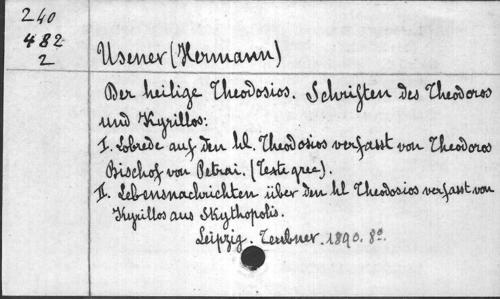 240
482
2
Usener (Hermann)
Der heilige Theodosios. Schriften des Theodoros
und Kyrillos:
I. Lobrede auf den hl. Theodosios verfasst von Theodoros
Bischof von Petrai. (Texte grec).
II. Lebensnachrichten über den hl Theodosios verfasst von
Kyrillos aus Skythopolis.
Leipzig. Teubner. 1890. 8º.